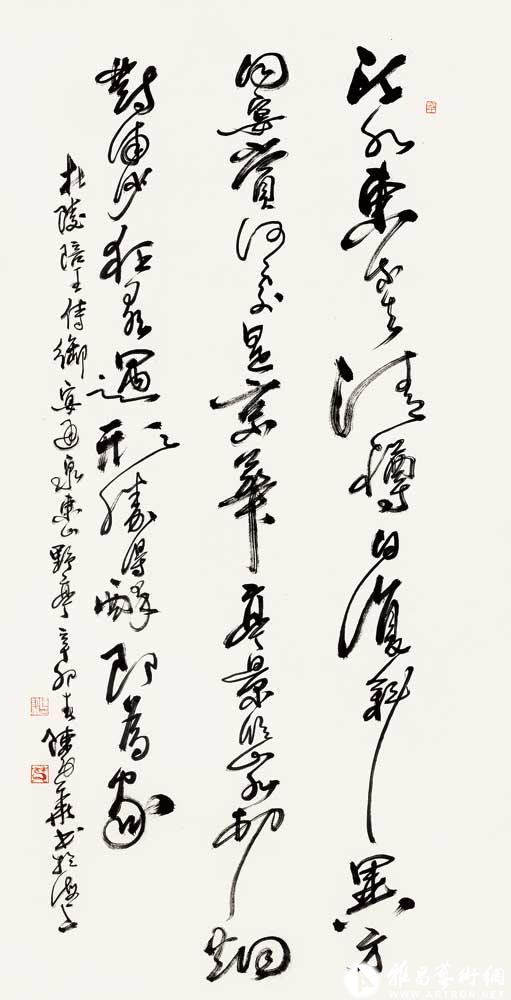 江水東流去清樽日復斜異方
同宴賞何處是京華亭景臨山水村烟
對浦沙狂歌過形勝得醉即為家
杜陵陪王侍御宴通泉東山野亭辛卯春陳
雅昌藝術網
WWW.ARTRON.NET